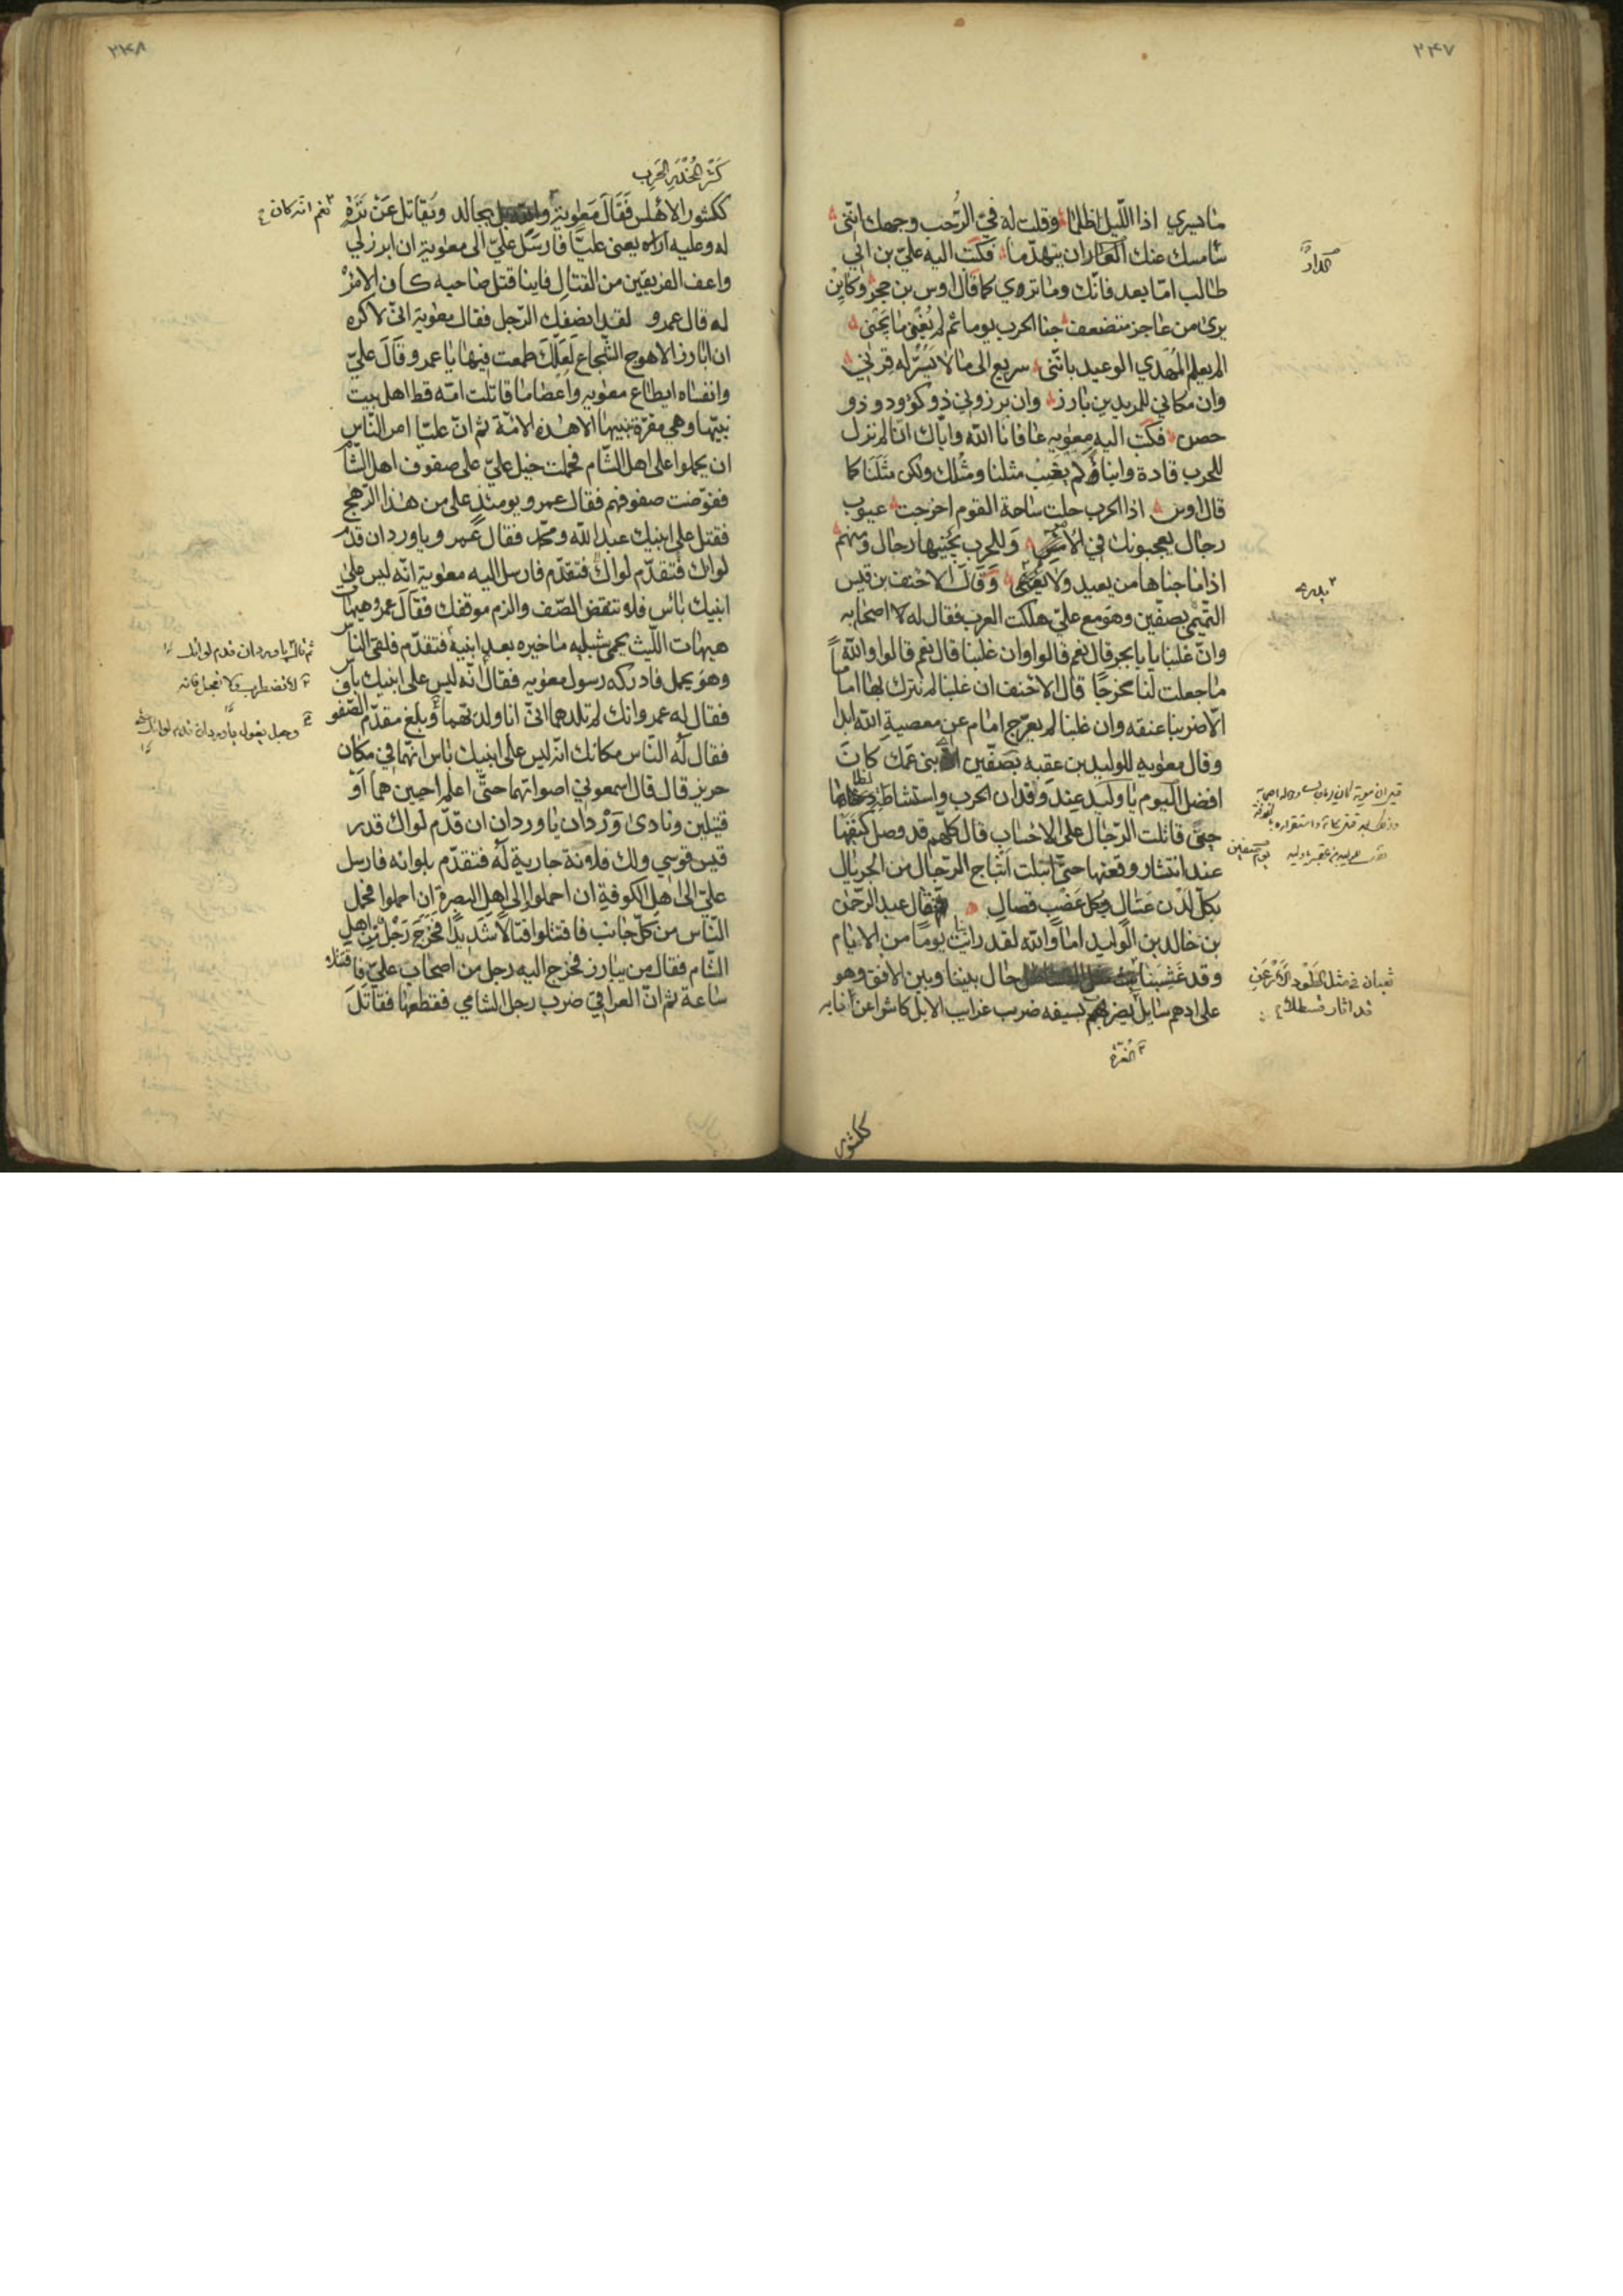 ٢٤٧
ما تسري اذا الليل اظلما وقلت له في الرحب وجهك انني
سامسك عنك الدار ان يتهدما فكتب اليه علي بن ابي
طالب اما بعد فانك وما تروي كما قال اوس بن حجر وكاين
يرى من عاجز متضعف جنا الحرب يوما ثم لم يغنى ما يجني
الم يعلم المهدي الوعيد بانني سريع الى ما لا يسر له قرني
وان مكاني للمريدين بارز وان برزوني ذو كوود وذو
حصن فكتب اليه معوية عافانا الله واياك انا لم نزل
للحرب قادة وابناؤ لم يغب مثلنا ومثلك ولكن مثلنا كما
قال اوس اذا الحرب حلت ساحة القوم اخرجت عيوب
رجال يعجبونك في الامن وللحرب يجنيها رجال ومنهم
اذا ما جناها من يعيد ولا يغنى وقال الاحنف بن قيس
التميمي بصفين وهو مع علي هلكت العرب فقال له اصحابه
وان غلبنا يا با بحر قال نعم قالوا وان غلبنا قال نعم قالوا والله
ما جعلت لنا مخرجا قال الاحنف ان غلبنا لم نترك بها اماما
الا ضربنا عنقه وان غلبنا لم يعرج امام عن معصية الله ابدا
وقال معوية للوليد بن عقبه بصفين بني عمك كان
افضل اليوم يا وليد عند وقدان الحرب واستشاطة
حتى قاتلت الرجال على الاحساب قال كلهم قد وصل كنفتها
عند انتشار وقعتها حتى ابتلت اثباج الرجال من الجريال
بكل لدن عسال وبكل عضب قصال فقال عبد الرحمن
بن خالد بن الوليد اما والله لقد رايت يوما من الايام
وقد غشينا حال بيننا وبين الافق وهو
على ادهم سايل يضربهم بسيفه ضرب غرايب الابل كاشرا عن انيابه
الدار
ثعبان في مثل الطود الارعن
قد اثار قسطلا
ككشور
٢٤٨
كشر المخدر الحرب
ككشور الاهلس فقال معوية والله يجالد ويقاتل عن ترة
نعم انه كان
له وعليه اراه يعني عليا فارسل علي الى معوية ان ابرز لي
واعف الفريقين من القتال فاينا قتل صاحبه كان الامر
له قال عمرو لقد انصفك الرجل فقال معوية اني لاكره
ان ابارز الاهوج الشجاع لعلك طمعت فيها يا عمرو وقال علي
وانفساه ايطاع معويه واعصا ما قاتلت امه قط اهل بيت
نبيها وهي مقرة بنبيها الا هذه الامة ثم ان عليا امر الناس
ان يحملوا على اهل الشام فحملت خيل علي على صفوف اهل الشام
فقوضت صفوفهم فقال عمرو يومئذ على من هذا الرهج
فقيل على ابنيك عبد الله ومحمد فقال عمرو يا وردان قدم
لواك فتقدم لواك فتقدم فارسل اليه معوية انه ليس على
ابنيك باس فلا تنقض الصف والزم موقفك فقال عمرو هيهات
هيهات الليث يحمي شبليه ما خيره بعد ابنيه فتقدم فلقي الناس
وهو يحمل فادركه رسول معويه فقال انه ليس على ابنيك باس
فقال له عمرو انك لم تلدهما اني انا ولدتهما وبلغ مقدم الصفوف
فقال له الناس مكانك انه ليس على ابنيك باس انهما في مكان
حريز قال قال اسمعوني اصواتهما حتى اعلم احيين هما او
قتيلين ونادى وردان يا وردان ان قدم لواك قدر
قيس قوسي ولك فلانة جارية له فتقدم بلوائه فارسل
علي الى اهل الكوفة ان احملوا والى اهل البصرة ان احملوا فحمل
الناس من كل جانب فاقتتلوا قتالا شديدا فخرج رجل من اهل
الشام فقال من يبارز فخرج اليه رجل من اصحاب علي فاقتتلا
ساعة ثم ان العراقي ضرب رجل الشامي فقطعها فقاتل